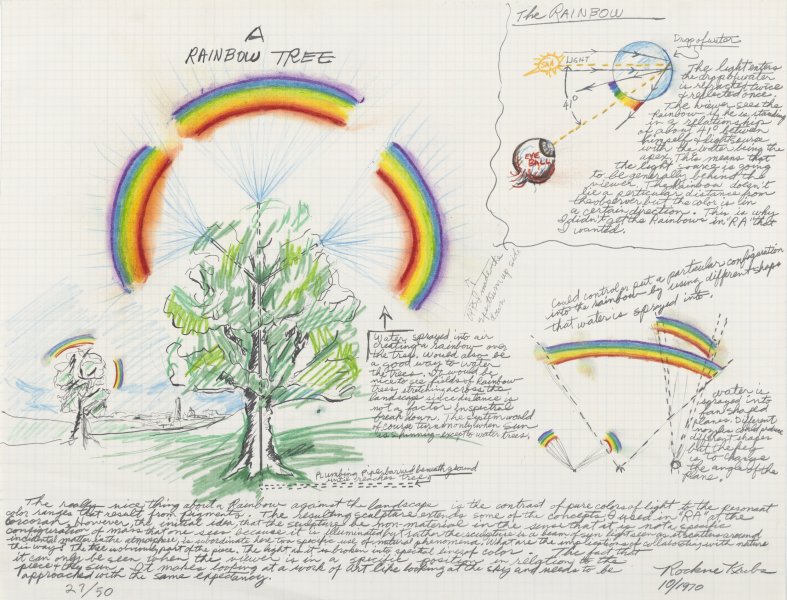 A
RAINBOW TREE
The RAINBOW
Drop of water
SUN
LIGHT
41°
EYE
BALL
The light enters
the drop of water
is refracted twice
& reflected once.
The viewer sees the
Rainbow if he is standing
in a relationship
of about 41° between
himself & light source
with the water being the
apex. This means that
the light source is going
to be generally behind the
viewer. The Rainbow doesn't
lie a particular distance from
the observer but the color is in
a certain direction. This is why
I didn't get the Rainbows in "RA" that
I wanted.
Could control or put a particular configuration
into the rainbow by using different shapes
that water is sprayed into.
water is
sprayed into
fan shaped
planes. Different
nozzles could produce
different shapes
but the key
is to change
the angle of the
plane.
Water sprayed into air
creating a rainbow over
the tree. Would also be
a good way to water
the trees. It would be
nice to see fields of Rainbow
Trees stretching across the
landscape since distance is
not a factor in spectral
break down. The system would
of course turn on only when sun
is shining except to water trees.
Plumbing pipe buried beneath ground
until reaches tree
The really nice thing about a Rainbow against the landscape is the contrast of pure colors of light to the resonant
color ranges that result from pigments. The resulting sculpture extends some of the concepts I used in "RA" at the
Corcoran. However, the initial idea that the sculpture be non-material in the sense that it is not a specific
configuration of mass that one seen because it is illuminated by & water the sculpture is a beam of sun light seen as it scatters around
incidental matter in the atmosphere, is subordinated here to a specific use of natural phenomena. What are the implications of collaborating with nature
this way? The tree is not really part of the piece. The light as it is broken into spectral lines of color. The fact that
it can only be seen when the viewer is in a specific position in relation to the
piece & the sun. It makes looking at a work of art like looking at the sky and needs to be
approached with the same expectancy.
27/50
Rockne Krebs
10/1970